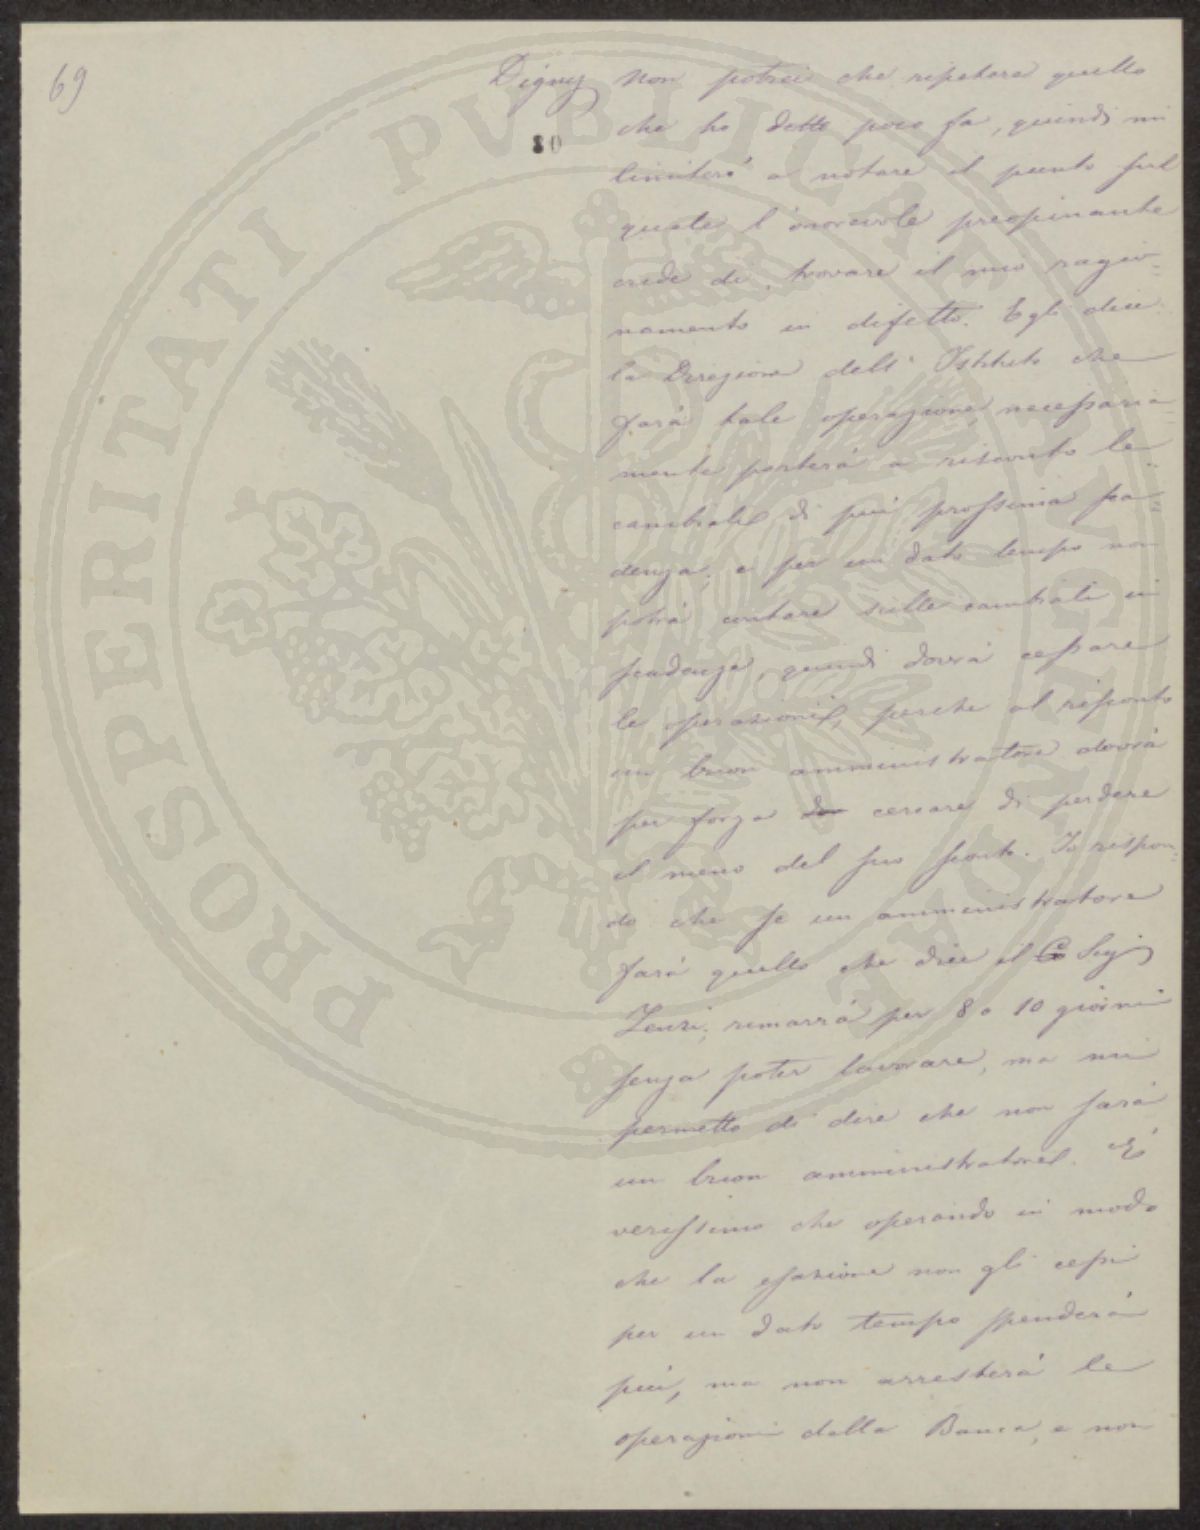 69
Digny Non potrei che ripetere quello
80
che ho detto poco fa, quindi mi
limiterò a notare il punto sul
quale l'onorevole preopinante
crede di trovare il mio ragio=
namento in difetto. Egli dice
la Direzione dell'Istituto che
farà tale operazione necessaria=
mente porterà a risconto le
cambiali di più prossima sca=
denza, e per un dato tempo non
potrà contare sulle cambiali in
scadenza, quindi dovrà cessare
le operazioni, perche al risconto
un buon amministratore dovrà
per forza do cercare di perdere
il meno del suo sconto. Io rispon=
do che se un amministratore
farà quello che dice il G Sig
rimarrà per 8 o 10 giorni
senza poter lavorare, ma mi
permetto di dire che non sarà
un buon amministratore. E'
verissimo che operando in modo
che la esazione non gli cessi
per un dato tempo spenderà
più, ma non arresterà le
operazioni della Banca, e non
PROSPERITATI PVBLICAE